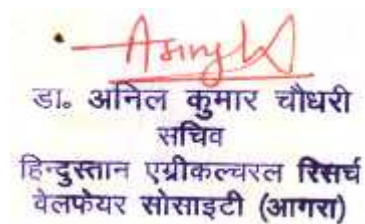 डा० अनिल कुमार चौधरी
सचिव
हिन्दुस्तान एग्रीकल्चरल रिसर्च
वेलफेयर सोसाइटी (आगरा)